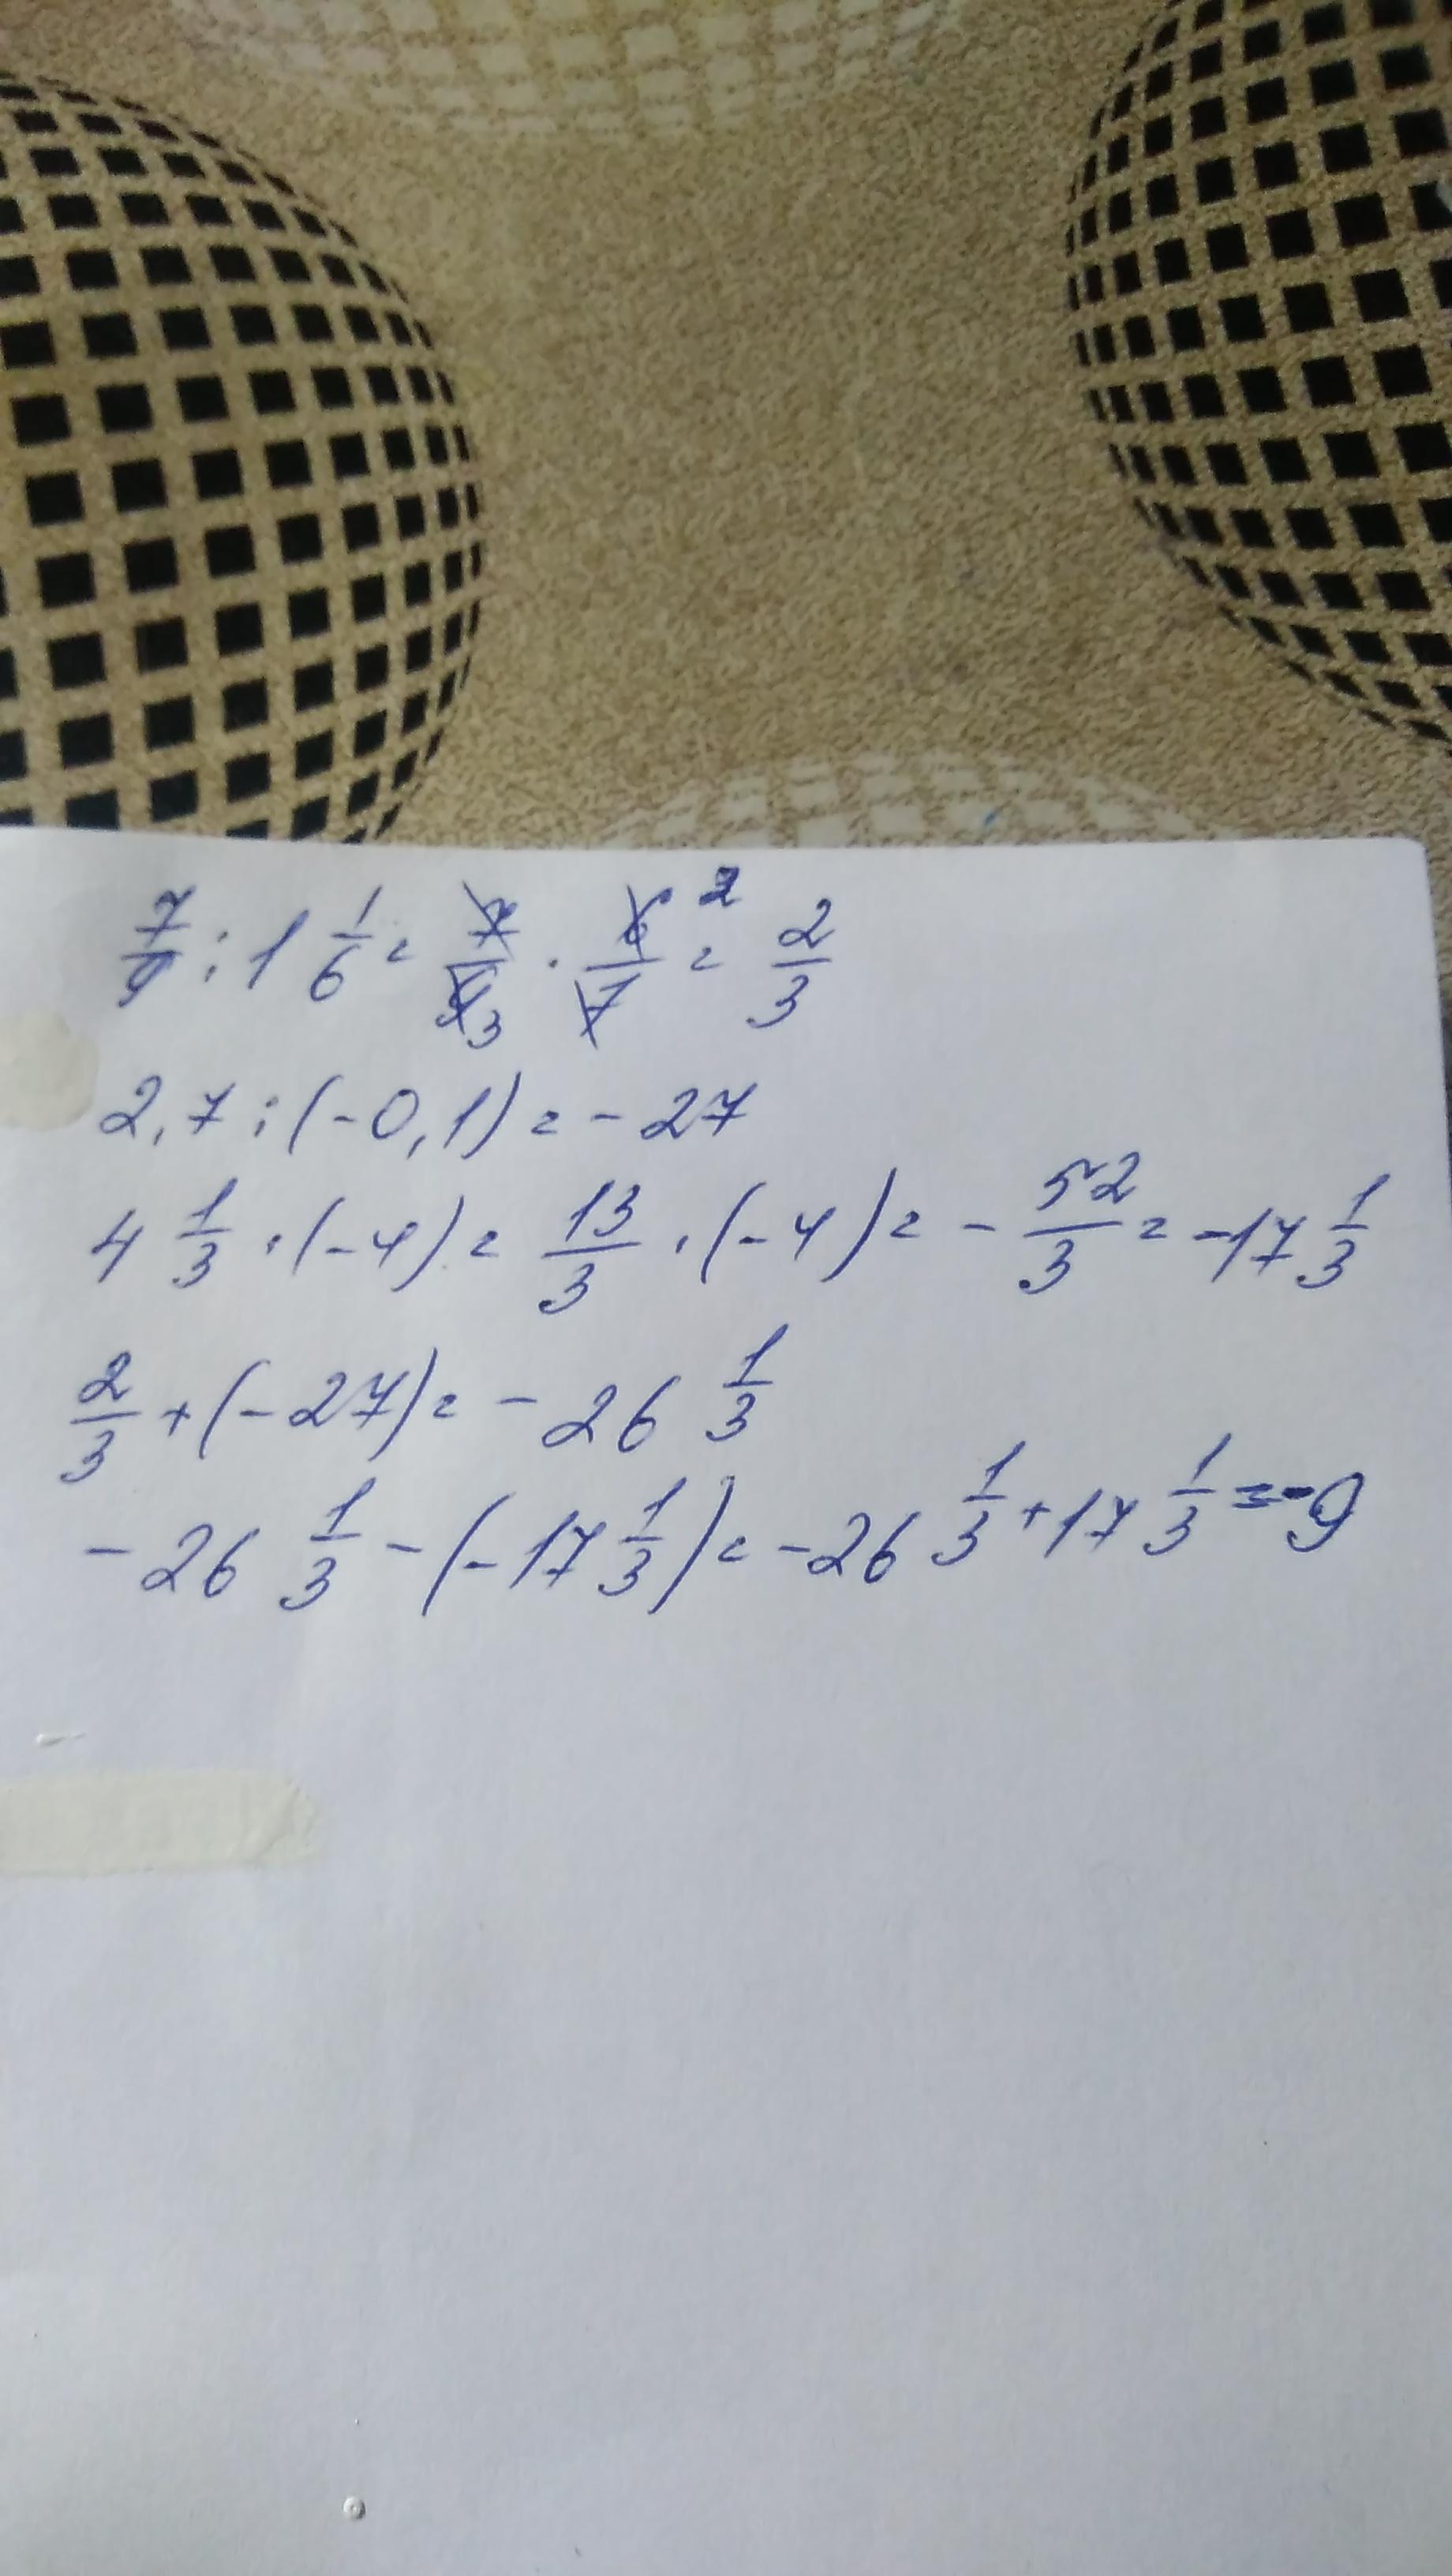 7/9 : 1 1/6 = 7/9 3 · 6/7 2 = 2/3
2,7 : (-0,1) = -27
4 1/3 · (-4) = 13/3 · (-4) = - 52/3 = -17 1/3
2/3 + (-27) = -26 1/3
-26 1/3 - (-17 1/3) = -26 1/3 + 17 1/3 = -9